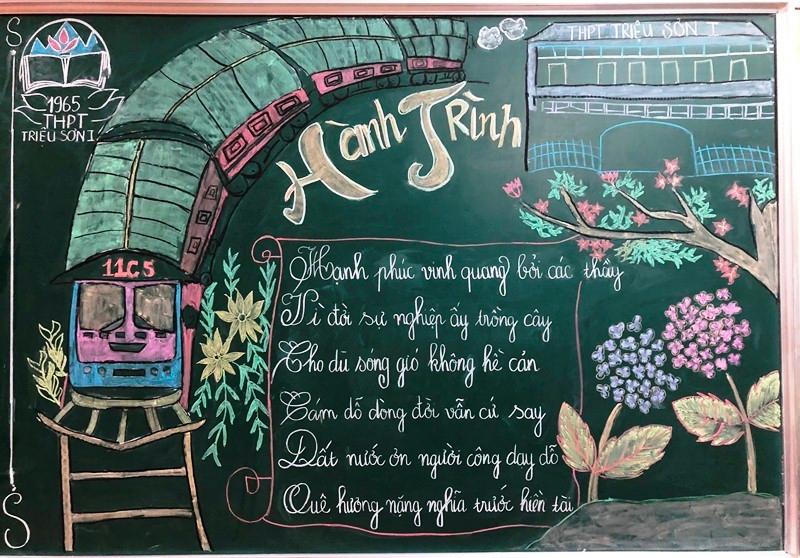 S
1965
THPT
TRIỆU SƠN I
THPT TRIỆU SƠN I
Hành Trình
11C5
Hạnh phúc vinh quang bởi các thầy
Vì đời sự nghiệp ấy trồng cây
Cho dù sóng gió không hề cản
Cám dỗ dòng đời vẫn cứ say
Đất nước ơn người công dạy dỗ
Quê hương nặng nghĩa trước hiền tài
S